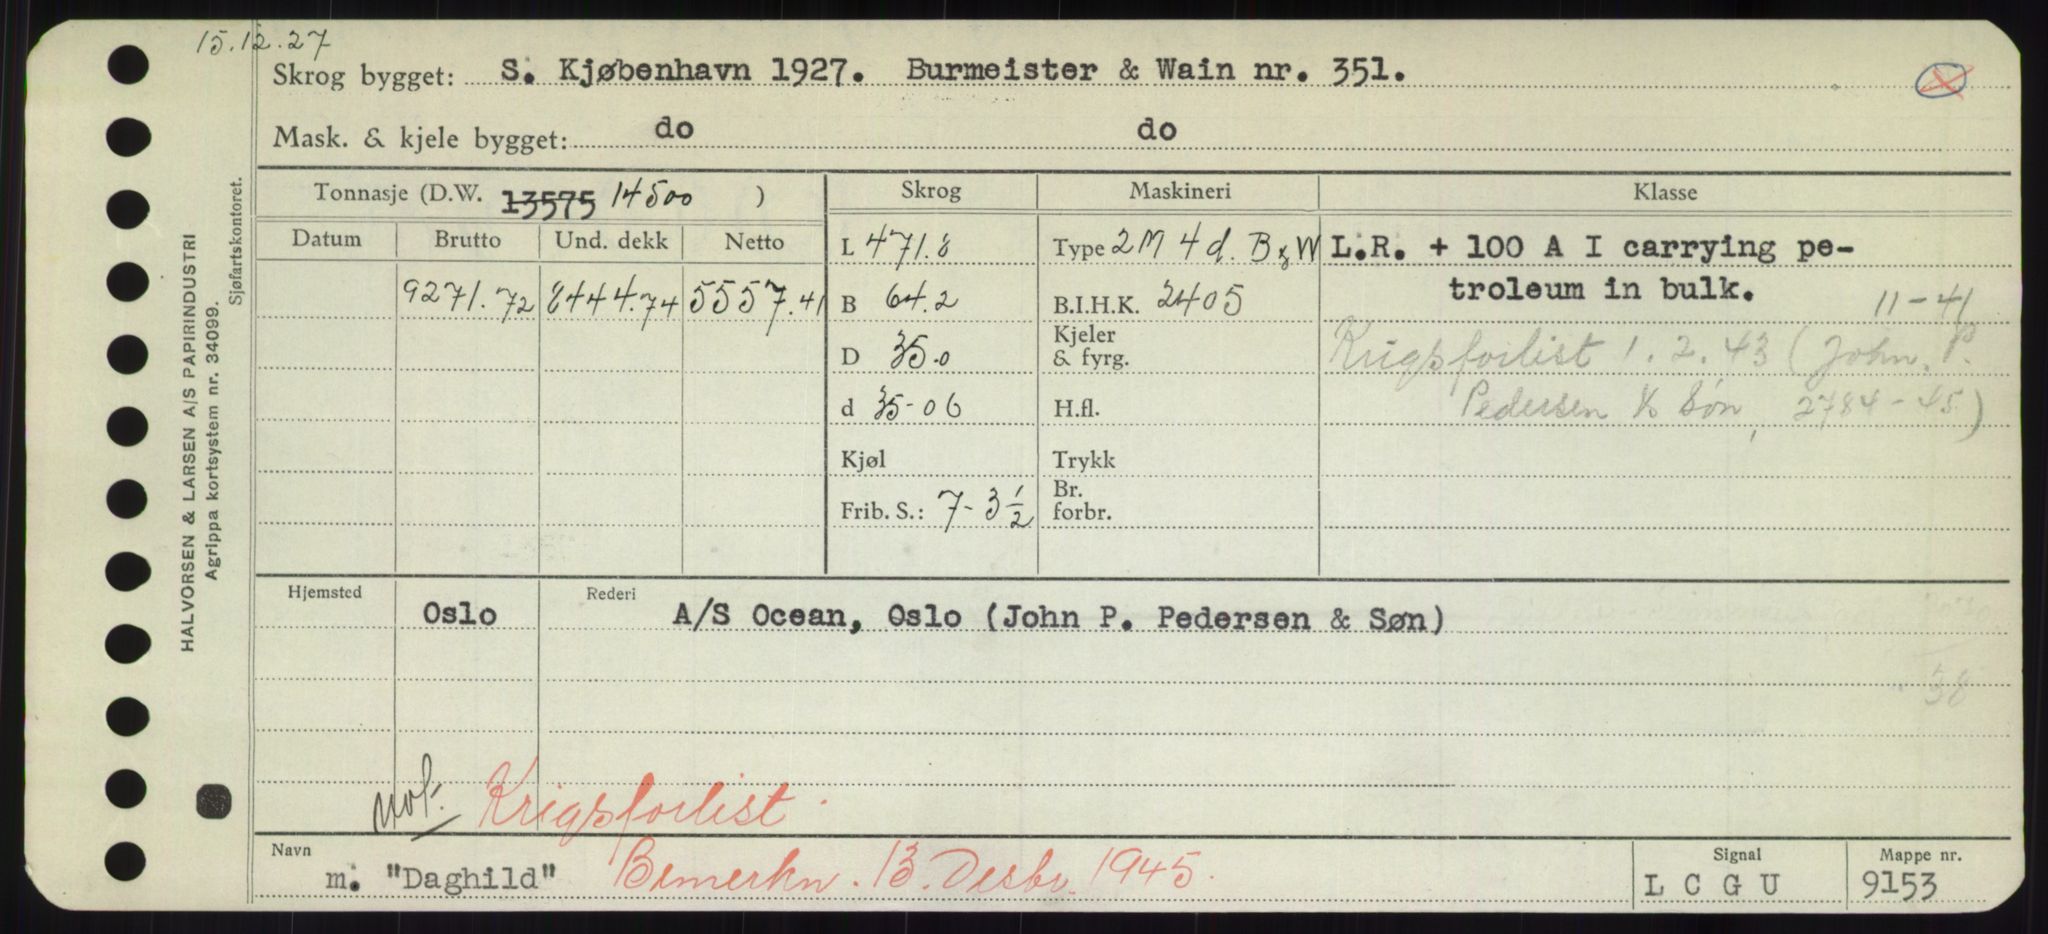 15.12.27
Skrog bygget: S. Kjøbenhavn 1927. Burmeister & Wain nr. 351.
Mask. & kjele bygget: do do
Tonnasje (D.W. 13575 14500 )
Skrog Maskineri Klasse
Datum Brutto Und. dekk Netto
9271.72 8444.74 5557.41
L 471.8
B 64.2
D 35.0
d 35-06
Kjøl
Frib. S.: 7-3 1/2
Type 2M 4 d. B & W
B.I.H.K. 2405
Kjeler
& fyrg.
H.fl.
Trykk
Br.
forbr.
L.R. + 100 A I carrying pe-
troleum in bulk.
11-41
Krigsforlist 1.2.43 (John. P.
Pedersen & Søn, 2784-45)
Hjemsted Rederi
Oslo A/S Ocean, Oslo (John P. Pedersen & Søn)
38
Krigsforlist.
Navn
m. "Daghild" Bemerkn. 13. Desbr. 1945.
Signal
L C G U
Mappe nr.
9153
HALVORSEN & LARSEN A/S PAPIRINDUSTRI
Agrippa kortsystem nr. 34099.
Sjøfartskontoret.